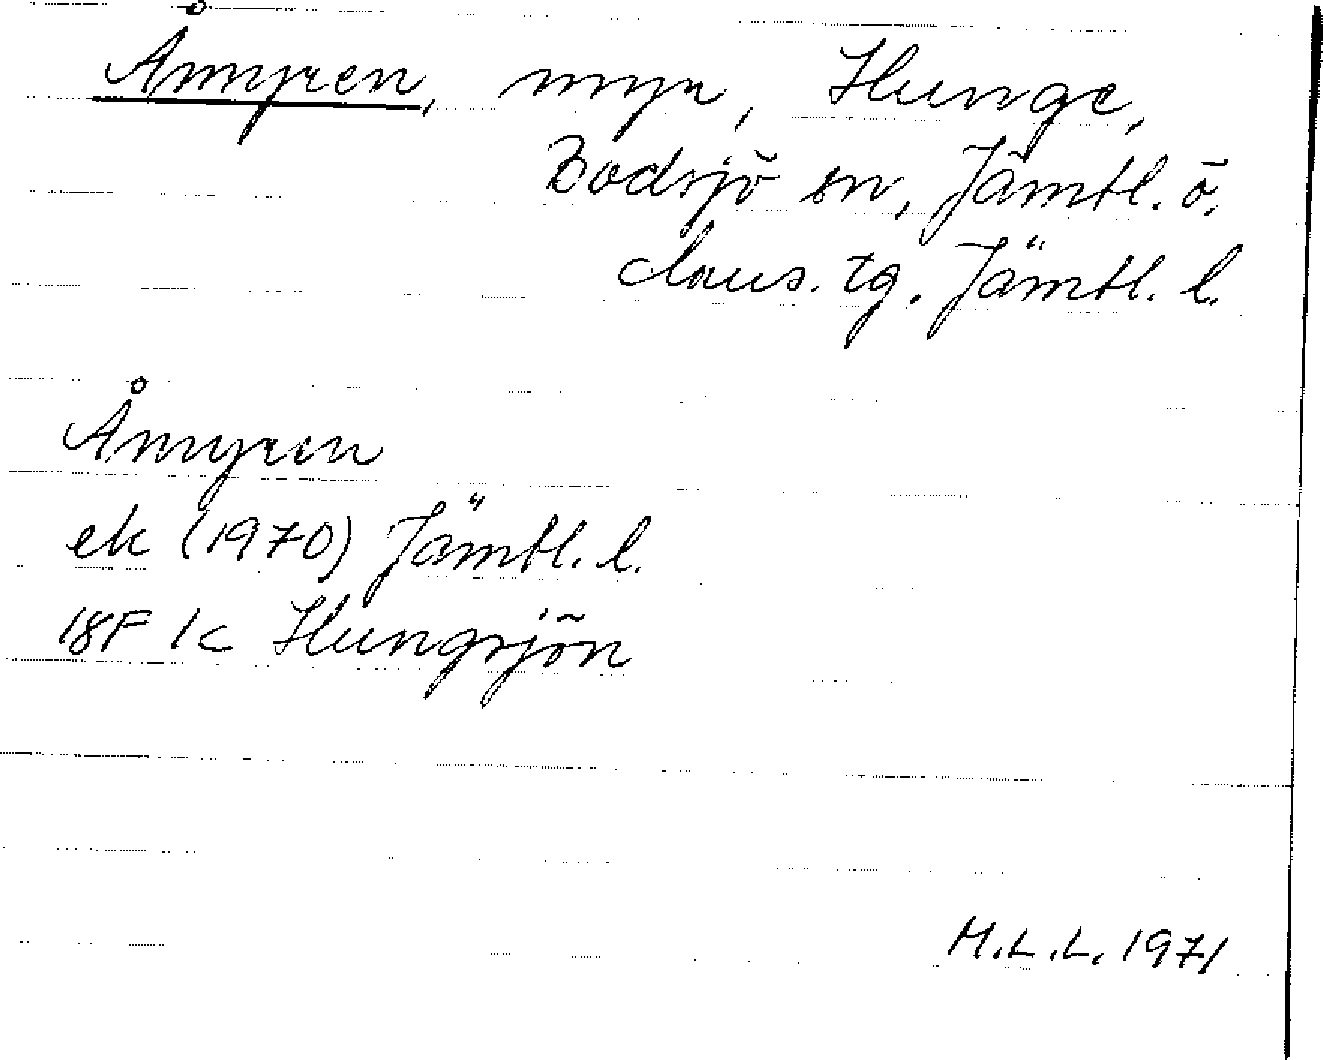 Åmyren, myr, Hunge,
Bodsjö sn, Jämtl. ö.
doms. tg. Jämtl. l.
Åmyren
ek (1970) Jämtl. l.
18F 1c Hungsjön
M.L.L. 1971